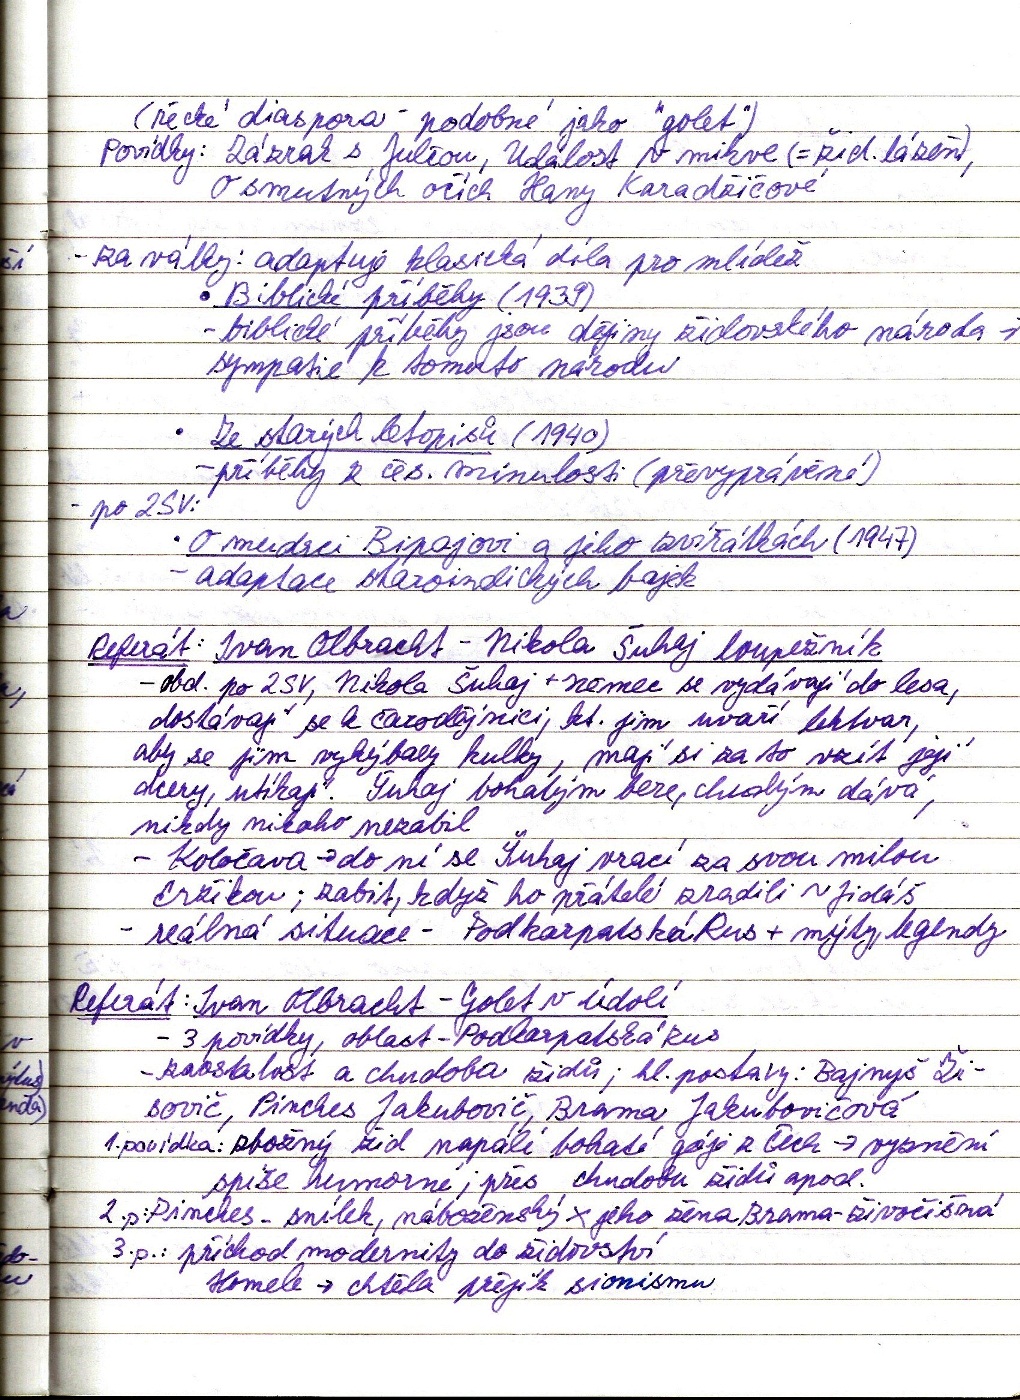 (řecké diaspora - podobné jako "golet")
Povídky: Zázrak s Julčou, Událost v mikve (= žid. lázeň),
O smutných očích Hany Karadžičové
- za války: adaptuje klasická díla pro mládež
• Biblické příběhy (1939)
- biblické příběhy jsou dějiny židovského národa →
sympatie k tomuto národu
• Ze starých letopisů (1940)
- příběhy z čes. minulosti (převyprávěné)
- po 2SV:
• O mudrci Bipajovi a jeho zvířátkách (1947)
- adaptace staroindických bajek
Referát: Ivan Olbracht - Nikola Šuhaj loupežník
- obd. po 2SV, Nikola Šuhaj + němec se vydávají do lesa,
dostávají se k čarodějnici, kt. jim uvaří lektvar,
aby se jim vyhýbaly kulky, mají si za to vzít její
dcery, utíkají. Šuhaj bohatým bere, chudým dává,
nikdy nikoho nezabil
- Koločava → do ní se Šuhaj vrací za svou milou
Eržikou; zabit, když ho přátelé zradili ~ Jidáš
- reálná situace - Podkarpatská Rus + mýty, legendy
Referát: Ivan Olbracht - Golet v údolí
- 3 povídky, oblast - Podkarpatská Rus
- zaostalost a chudoba židů; hl. postavy: Bajnyš Zi-
sovič, Pinches Jakubovič, Brama Jakubovičová
1. povídka: zbožný žid napálí bohaté góje z Čech → vyznění
spíše humorné; přes chudobu židů apod.
2. p: Pinches - snílek, náboženský × jeho žena Brama - živočišná
3. p.: příchod modernity do židovství
Hanele → chtěla přejít k sionismu